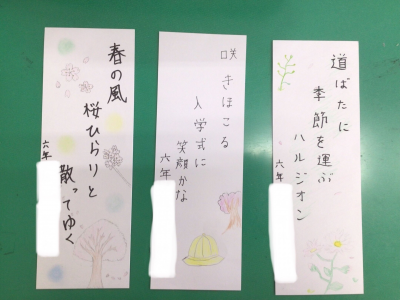 春の風
桜ひらりと
散ってゆく
六年
咲きほこる
入学式に
笑顔かな
六年
道ばたに
季節を運ぶ
ハルジオン
六年